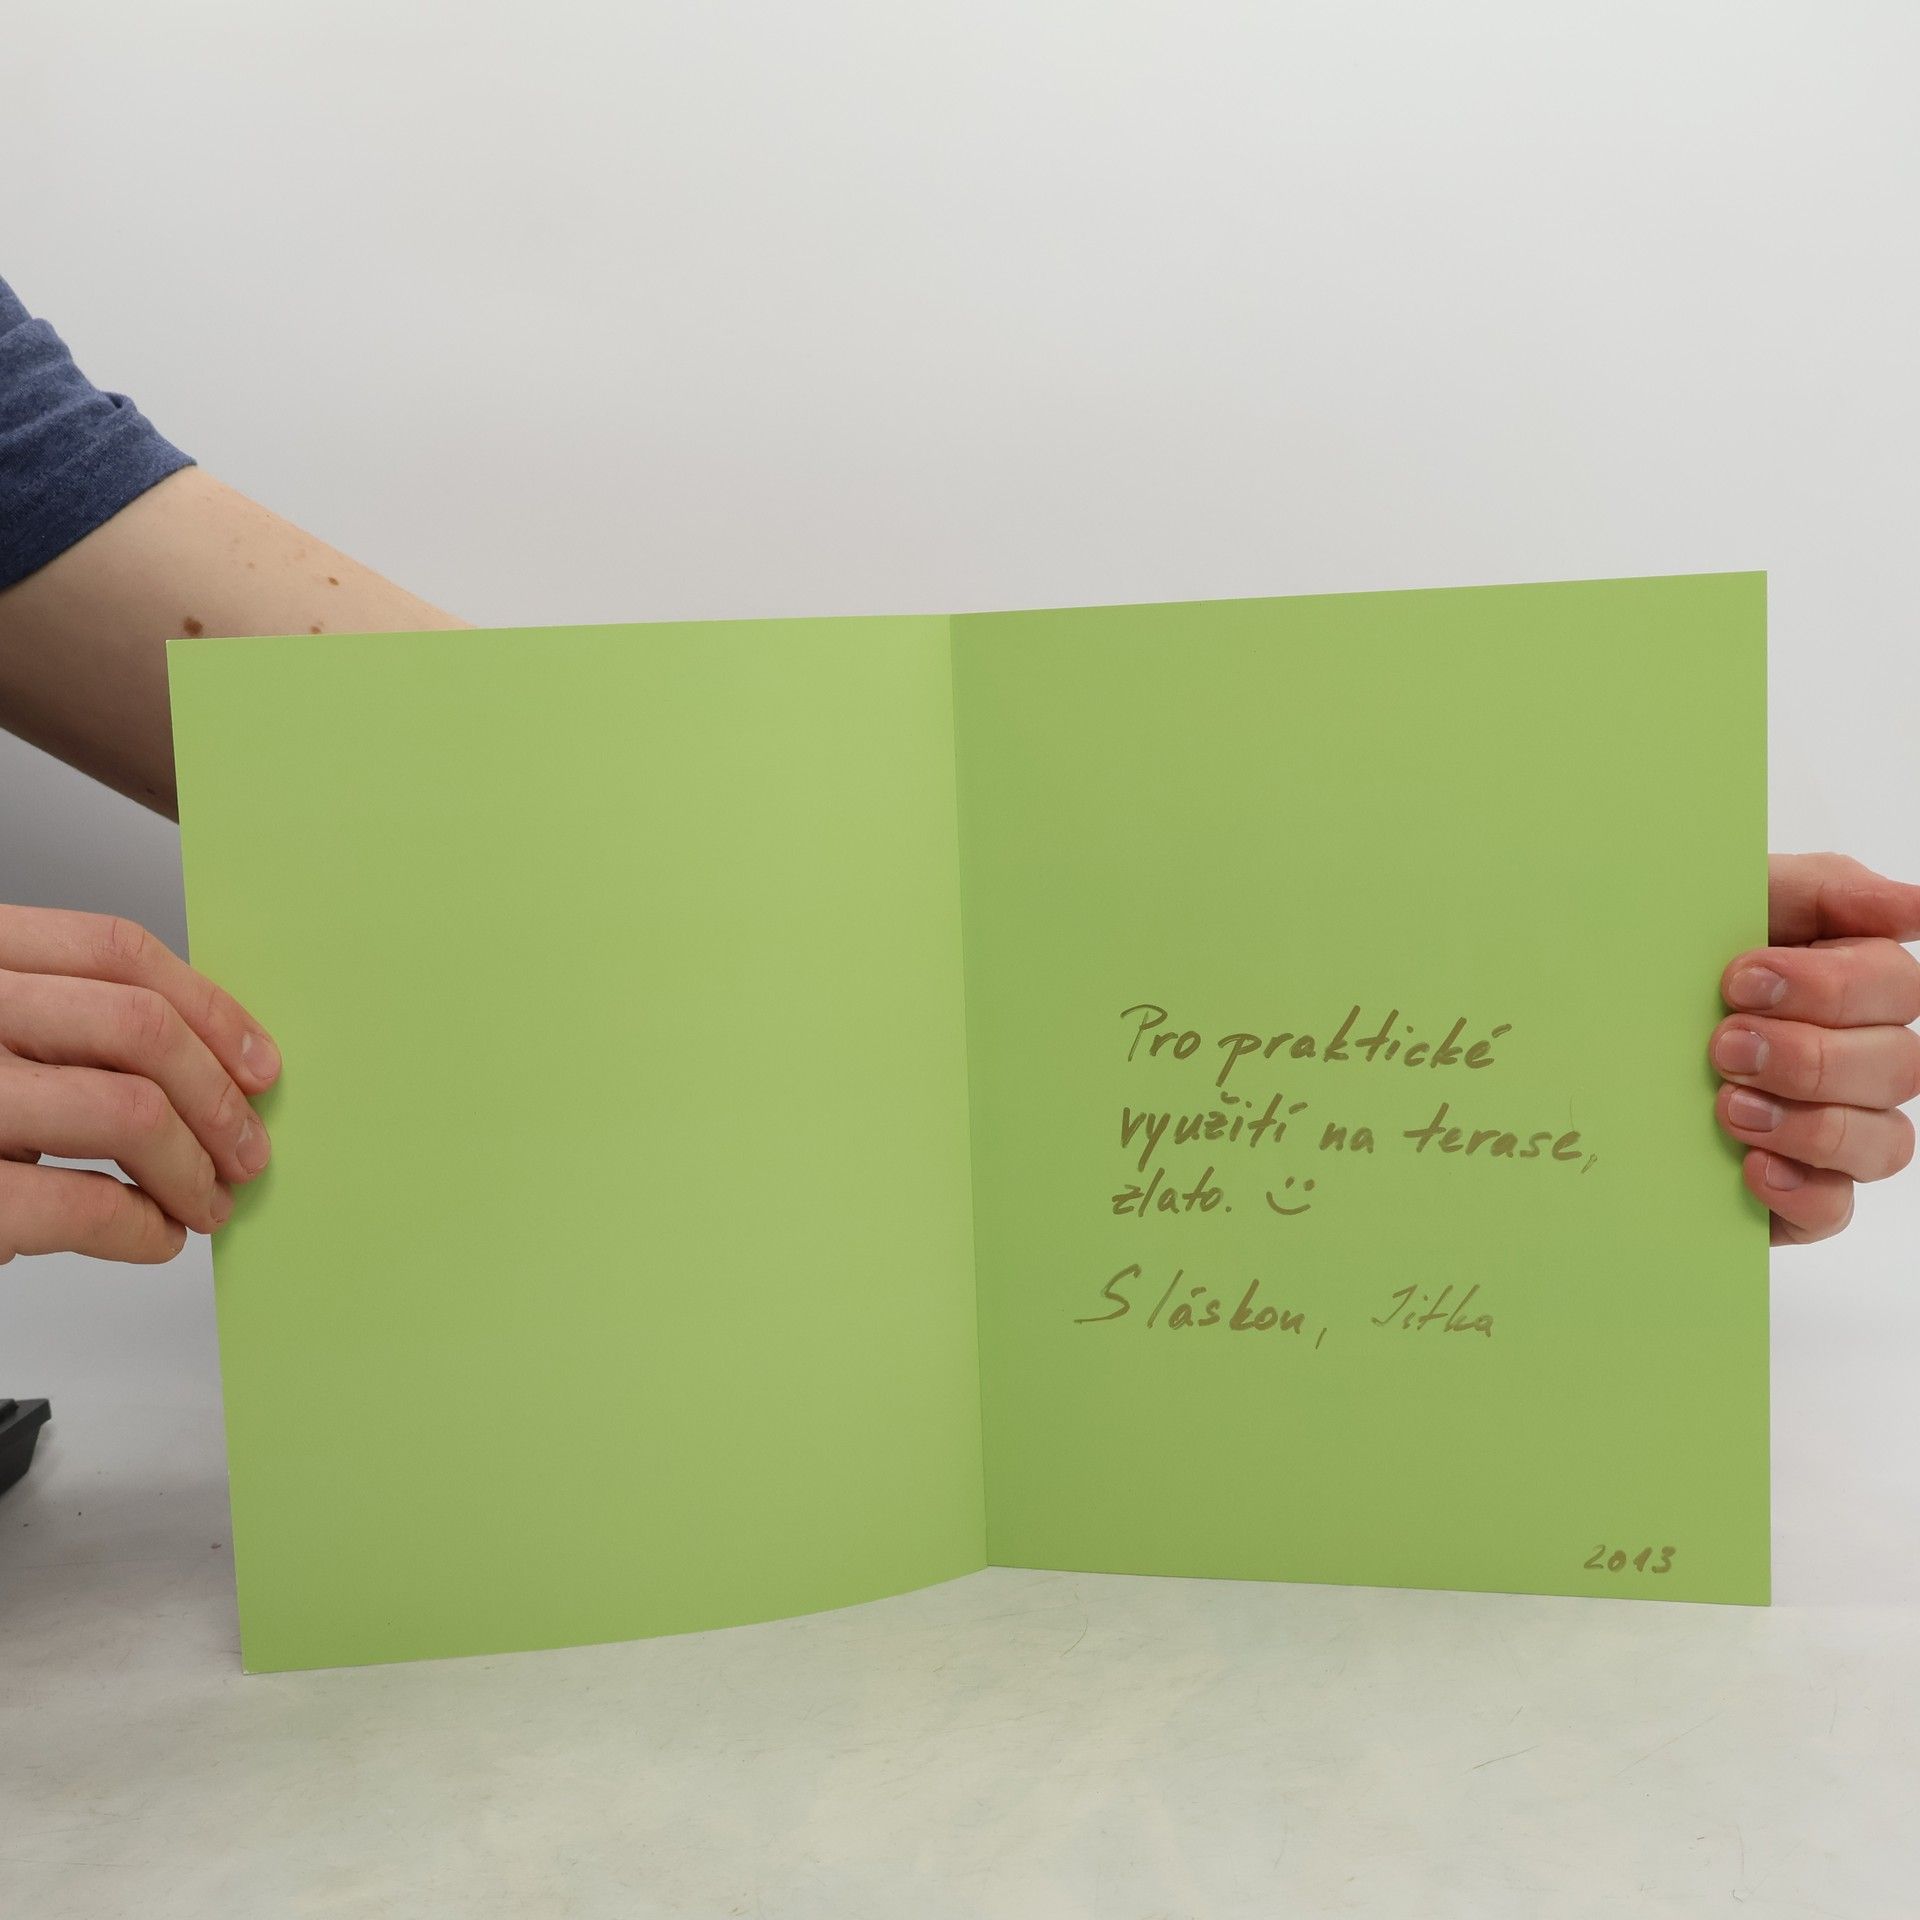 Pro praktické
využití na terase,
zlato. 
S láskou, Jitka
2013